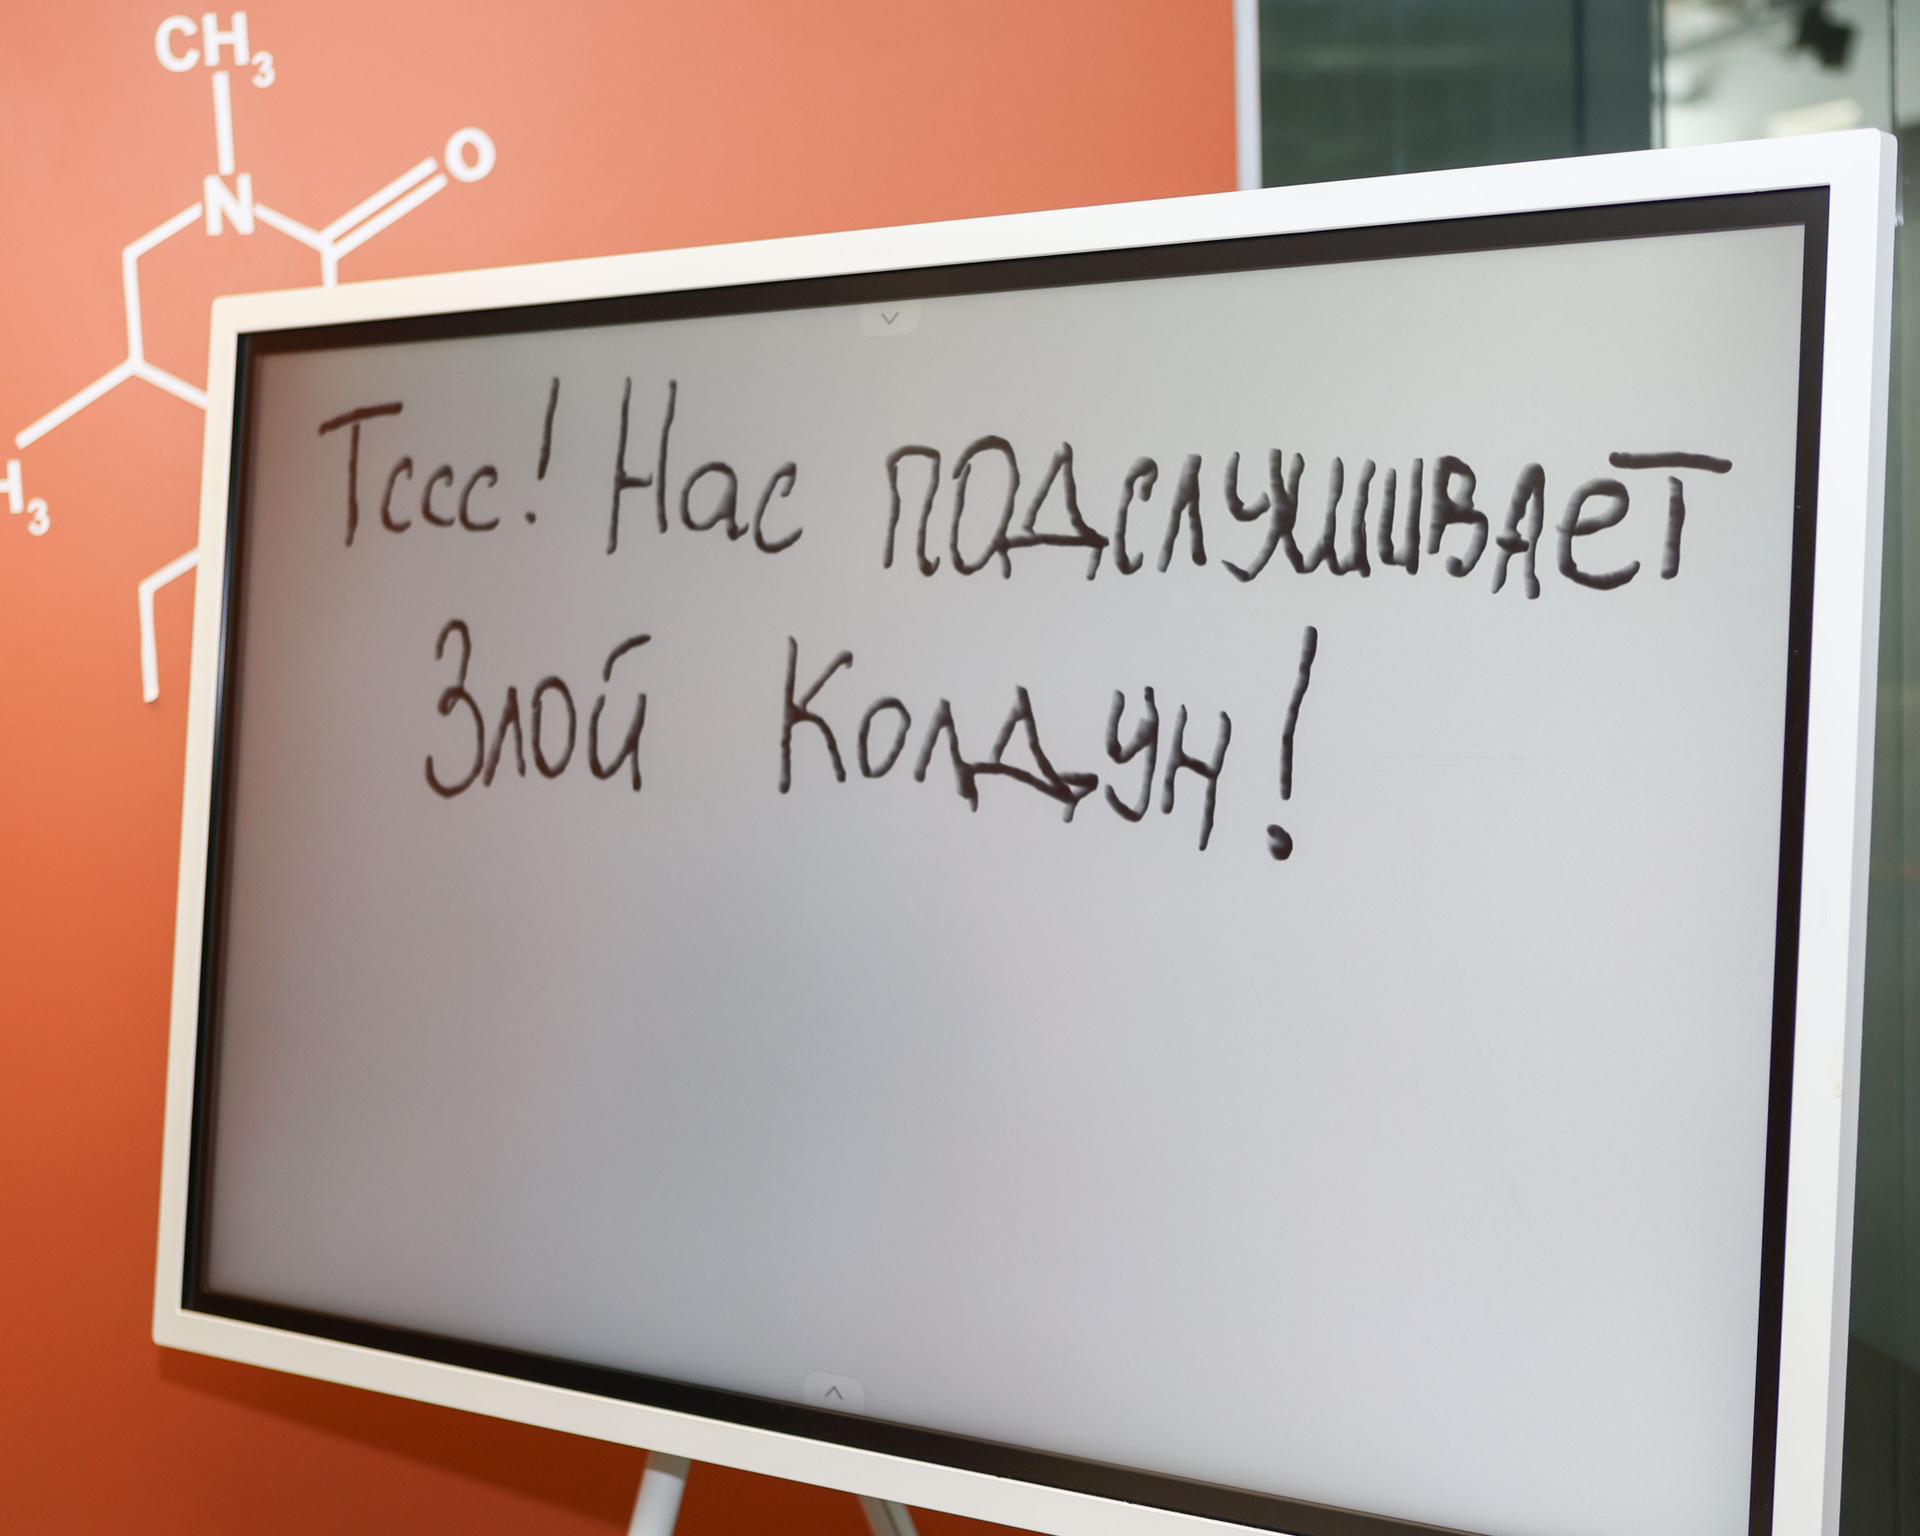 CH₃
N
O
H₃
Тссс! Нас подслушивает
Злой Колдун!